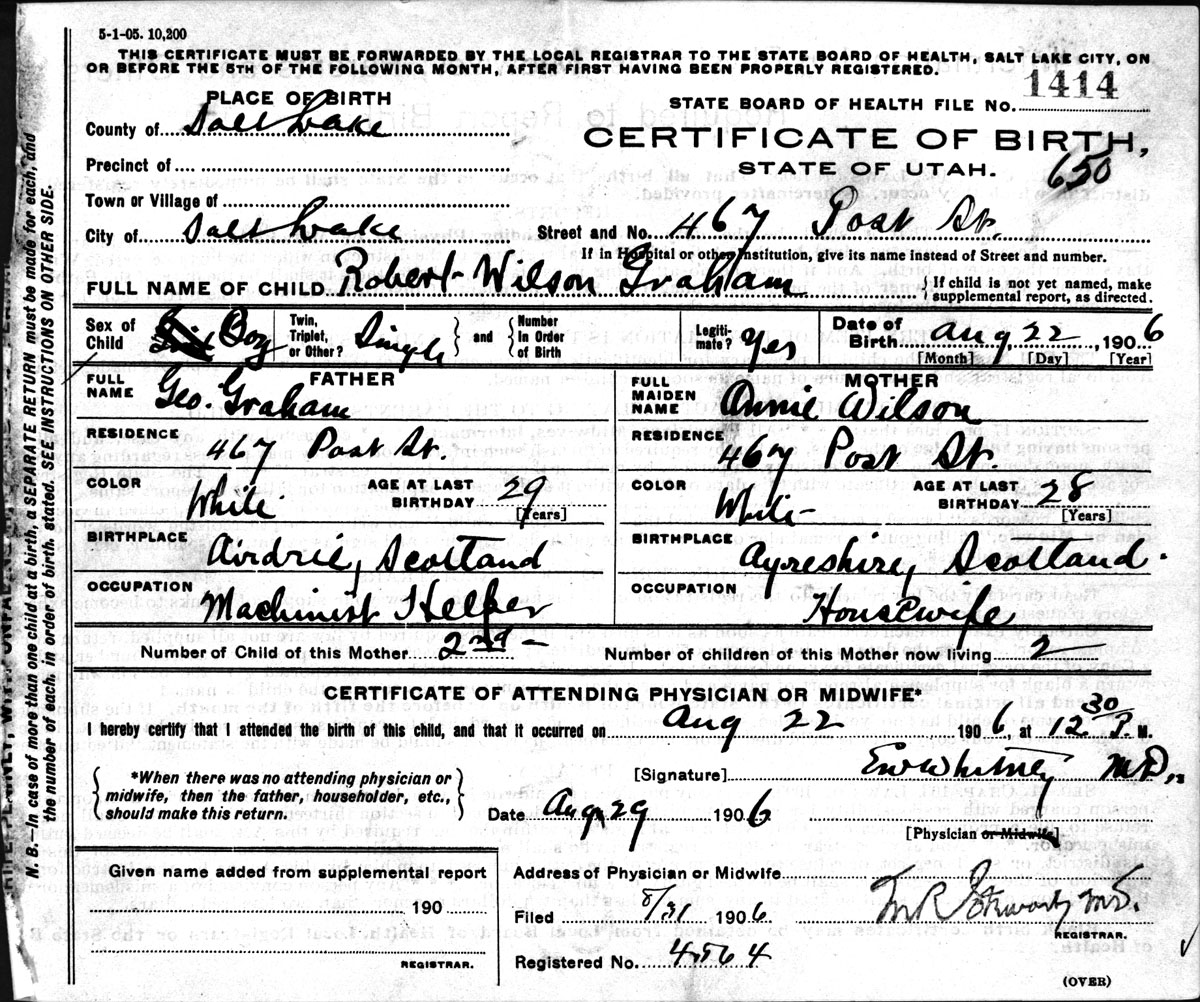 5-1-05. 10,200
THIS CERTIFICATE MUST BE FORWARDED BY THE LOCAL REGISTRAR TO THE STATE BOARD OF HEALTH, SALT LAKE CITY, ON
OR BEFORE THE 5TH OF THE FOLLOWING MONTH, AFTER FIRST HAVING BEEN PROPERLY REGISTERED.
STATE BOARD OF HEALTH FILE NO. 1414
PLACE OF BIRTH
County of Salt Lake
CERTIFICATE OF BIRTH,
STATE OF UTAH.
650
Precinct of
Town or Village of
City of Salt Lake
Street and No. 467 Post St.
If in Hospital or other Institution, give its name instead of Street and number.
FULL NAME OF CHILD Robert Wilson Graham
If child is not yet named, make
supplemental report, as directed.
Sex of Child Boy
Twin, Triplet, or Other? Single
and
Number In Order of Birth
Legiti-mate? Yes
Date of Birth Aug 22 1906
[Month] [Day] [Year]
FATHER
FULL NAME Geo. Graham
RESIDENCE 467 Post St.
COLOR White
AGE AT LAST BIRTHDAY 29
[Years]
BIRTHPLACE Airdrie, Scotland
OCCUPATION Machinist Helper
MOTHER
FULL MAIDEN NAME Annie Wilson
RESIDENCE 467 Post St.
COLOR White
AGE AT LAST BIRTHDAY 28
[Years]
BIRTHPLACE Ayreshire, Scotland.
OCCUPATION Housewife
Number of Child of this Mother 2nd
Number of children of this Mother now living 2
CERTIFICATE OF ATTENDING PHYSICIAN OR MIDWIFE*
I hereby certify that I attended the birth of this child, and that it occurred on Aug 22 1906, at 12 30 P. M.
*When there was no attending physician or
midwife, then the father, householder, etc.,
should make this return.
[Signature] EW Whitney M.D.
Date Aug 29 1906
[Physician or Midwife]
Given name added from supplemental report
190
REGISTRAR.
Address of Physician or Midwife
Filed 8/31 1906
M.D.
REGISTRAR.
Registered No. 4564
(OVER)
N. B.—In case of more than one child at a birth, a SEPARATE RETURN must be made for each, and
the number of each, in order of birth, stated. SEE INSTRUCTIONS ON OTHER SIDE.